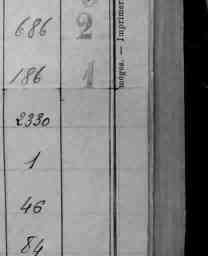 686 2
186 1
2330
1
46
84
moges. — Imprimer